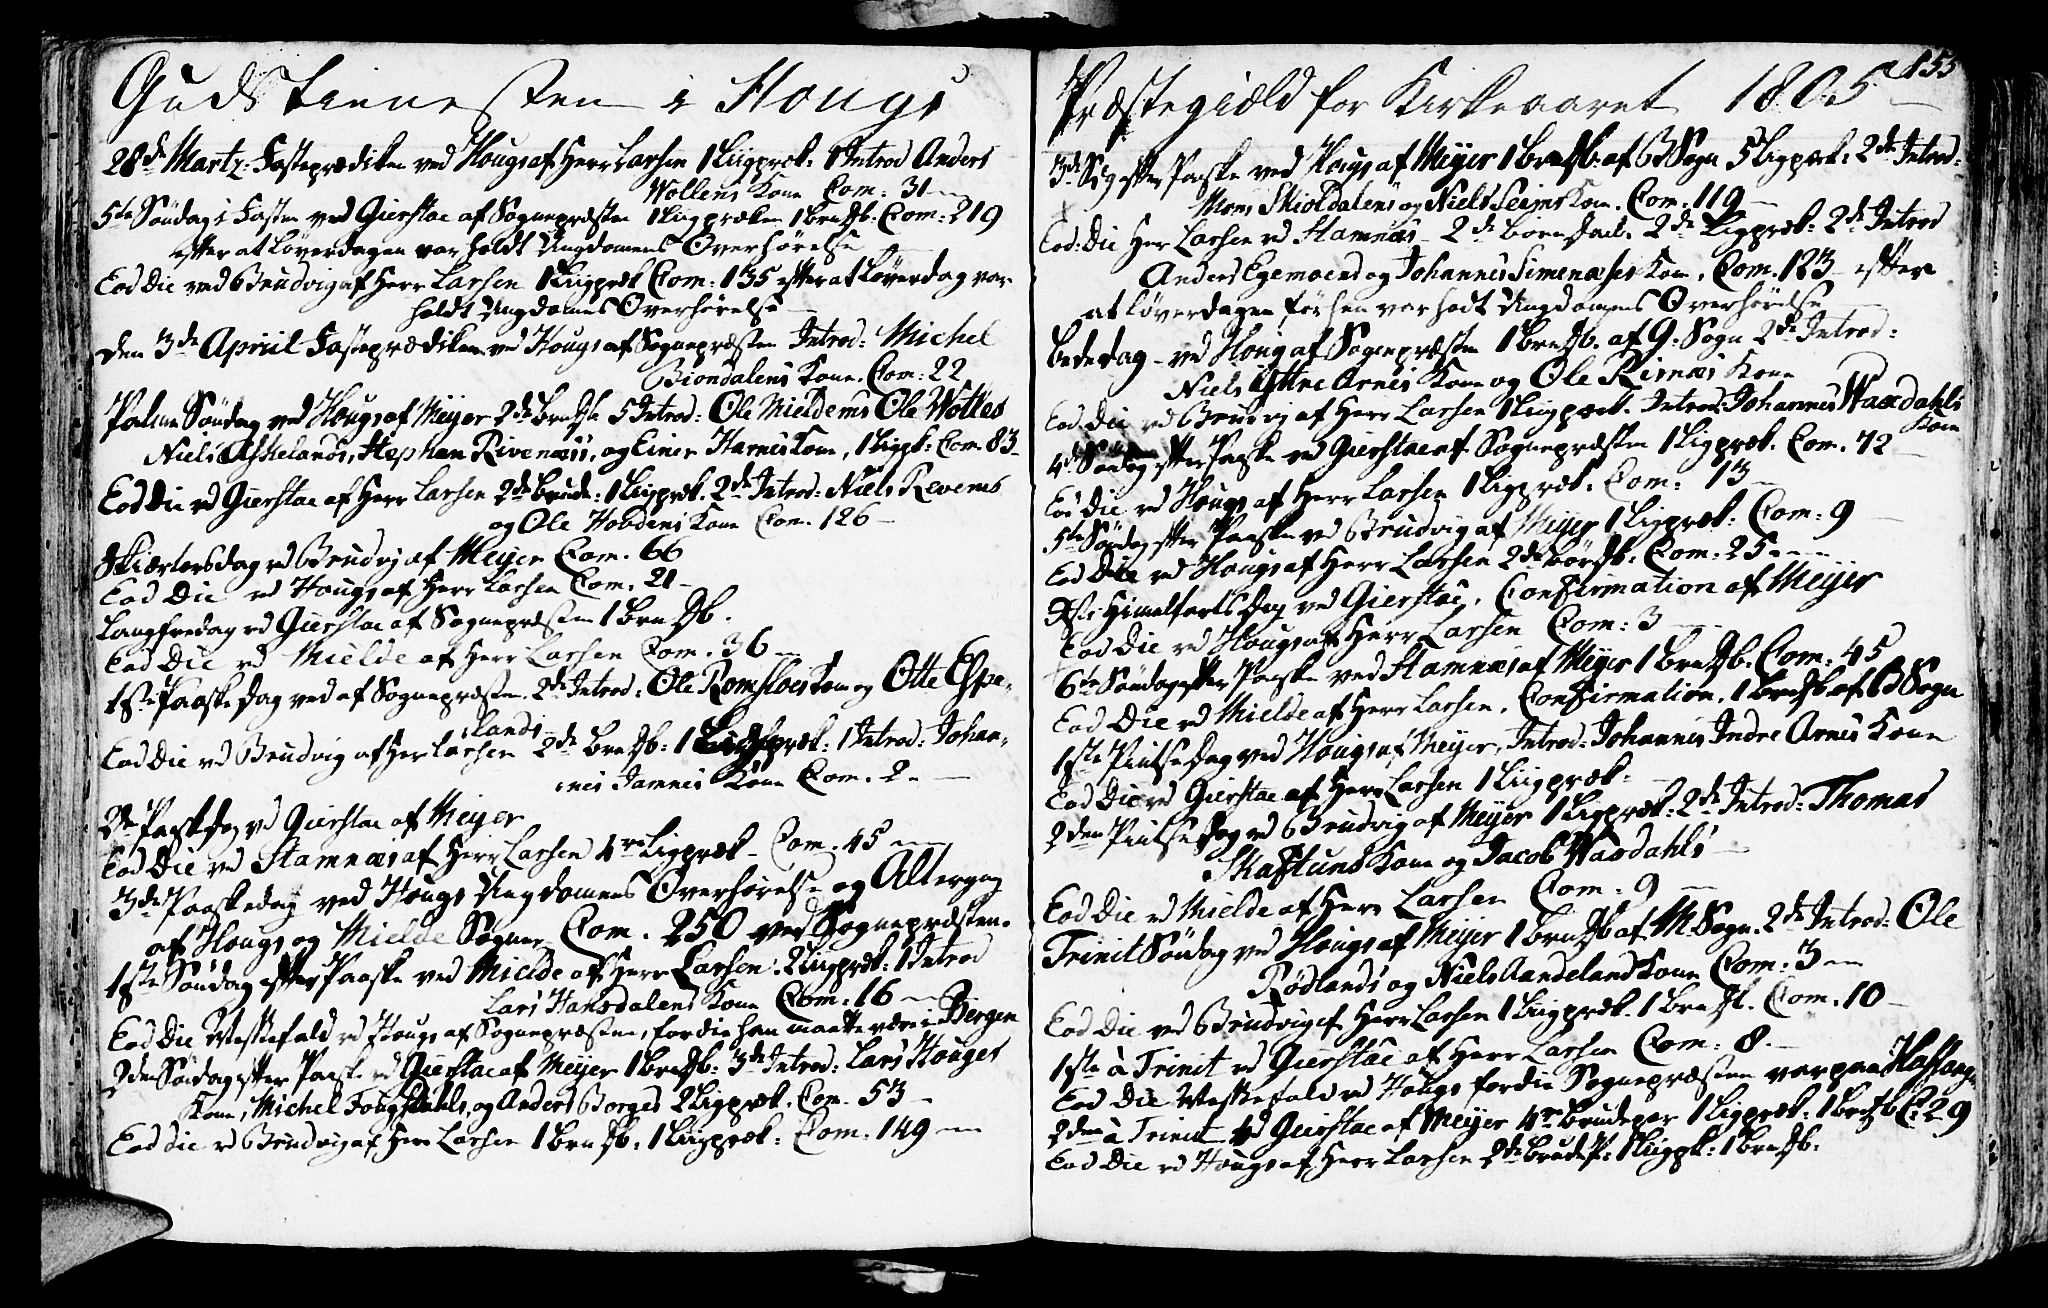 Gudstienesten i Hougs
28de Martz: Fasteprædiken ved Hougs af Herr Larsen 1 Liigpræk: 1 Introd Anders
Wollens Kone Com: 31
5te Søndag i Fasten ved Gierstae af Sognepræsten 1 Liigpræken 1 Brn Db. Com: 219
efter at Løverdagen var holdt Ungdomens Overhørelse
Eod Die ved Brudvig af Herr Larsen 1 Liigpræk Com: 135 efter at Løverdag var
holdt Ungdomens Overhørelse
den 3de Apriil Fasteprædiken ved Hougs af Sognepræsten Introd: Michel
Biondalens Kone. Com: 22
Palme Søndag ved Hougs af Meyer 2de Brn Db 5 Introd: Ole Mieldems Ole Wolles
Niels Askelands, Stephan Rivenæss, og Einer Harnes Kone, 1 Ligpk: Com 83
Eod Die vd Gierstae af Herr Larsen 2de Brude: 1 Ligpræk. 2de Introd: Niels Revems
og Ole Hobdens Kone Com. 126
Skiærtorsdag vd Brudvig af Meyer Com. 66
Eod Die vd Hougs af Herr Larsen Com. 21
Langfredag vd Gierstae af Sognepræsten 1 Brn Db.
Eod Die vd Mielde af Herr Larsen Com. 36
1ste Paaske Dag ved af Sognepræsten. 2de Introd: Ole Romsloes Kone og Otte Espe-
lands
Eod Die vd Brudvig af Her Larsen 2de Brn Db: 1 Ligpræk: 1 Introd: Johan-
nes Jamnes Kone Com. 2.
2den Paaskedag vd Gierstae af Meyer
Eod Die ved Stamnæs af Herr Larsen 4re Ligpræk Com. 45
3de Paaskedag ved Hougs Ungdomens Overhørelse og Altergang
af Hougs og Mielde Sogner Com. 250 ved Sognepræsten.
1ste Søndag efter Paaske ved Mielde af Herr Larsen. 2 Ligpræk: 1 Introd
Lars Hansdalens Kone Com. 16
Eod Die Messefald vd Hougs af Sognepræsten, fordi han maatte være i Bergen
2den Søndag efter Paaske vd Gierstae af Meyer 1 Brn Db: 3de Introd: Lars Houges
Kone, Michel Fougstahls, og Anders Borges 2 Ligpræk. Com. 53
Eod Die vd Brudvig af Herr Larsen 1 Brn Db: 1 Liigpræk: Com: 149
155
Præstegiæld for Kirkeaaret 1805
3de Søg efter Paaske ved Hougs af Meyer 1 Brn Db. af B Sogn 5 Ligpræk: 2de Introd:
Mons Skioldalens og Niels Seims Kone. Com. 119
Eod: Die Her Larsen vd Stamnæs 2de Børn Daab. 2de Ligpræk: 2de Introd
Anders Egemoens og Johannes Simenæses Kone. Com. 123 efter
at Løverdagen forhen var hodt Ungdomens Overhørelse
Bededag ved Houg af Sognepræsten 1 Brn Db. af G. Sogn 2de Introd:
Niels Yttre Arnes Kone og Ole Risnæs Kone
Eod Die vd Brudvig af Herr Larsen 1 Ligpræk. Introd: Johannes Waxdahls
Kone
4de Søndag efter Paaske ved Gierstae af Sognepræsten 1 Ligpræk. Com. 72
Eod Die vd Hougs af Herr Larsen 1 Ligpræk. Com: 13
5te Søndag efter Paaske vd Brudvig af Meyer 1 Ligpræk: Com: 9
Eod Die vd Hougs af Herr Larsen 2de Børn Db: Com: 25
Chr: Himelfarts Dag ved Gierstae, Confirmation af Meyer
Eod Die vd Hougs af Herr Larsen Com: 3
6te Søndag efter Paaske ved Stamnæs af Meyer 1 Brn Db. Com. 45
Eod Die vd Mielde af Herr Larsen. Confirmation. 1 Brn Db af Sogn
1ste Pintse Dag ved Hougs af Meyer, Introd: Johannes Indre Arnes Kone
Eod Die vd Gierstae af Herr Larsen 1 Liigpræk:
2den Pintse Dag vd Brudvig af Meyer 1 Ligpræk: 2de Introd: Thomas
Skaftuns Kone og Jacob Waxdahls
Eod Die vd Mielde af Herr Larsen Com: 9
Trinit Søndag ved Hougs af Meyer 1 Brn Db af M. Sogn. 2de Introd: Ole
Rødlands og Niels Aandelands Kone Com: 3
Eod Die ved Brudvig af Herr Larsen 1 Liigpræk. 1 Brn Db. Com. 10
1ste à Trinit vd Gierstae af Herr Larsen Com: 8.
Eod Die Messefald vd Hougs fordi Sognepræsten var paa
2den à Trinit vd Gierstae af Meyer 4re Brudepar 1 Ligpræk: 1 Brn Db C: 29
Eod Die vd Hougs af Herr Larsen 2de Brudep: 1 Ligpk: 1 Brn Db: